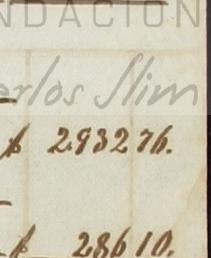 NDACIÓN
arlos Slim
$ 293276.
$ 28610.